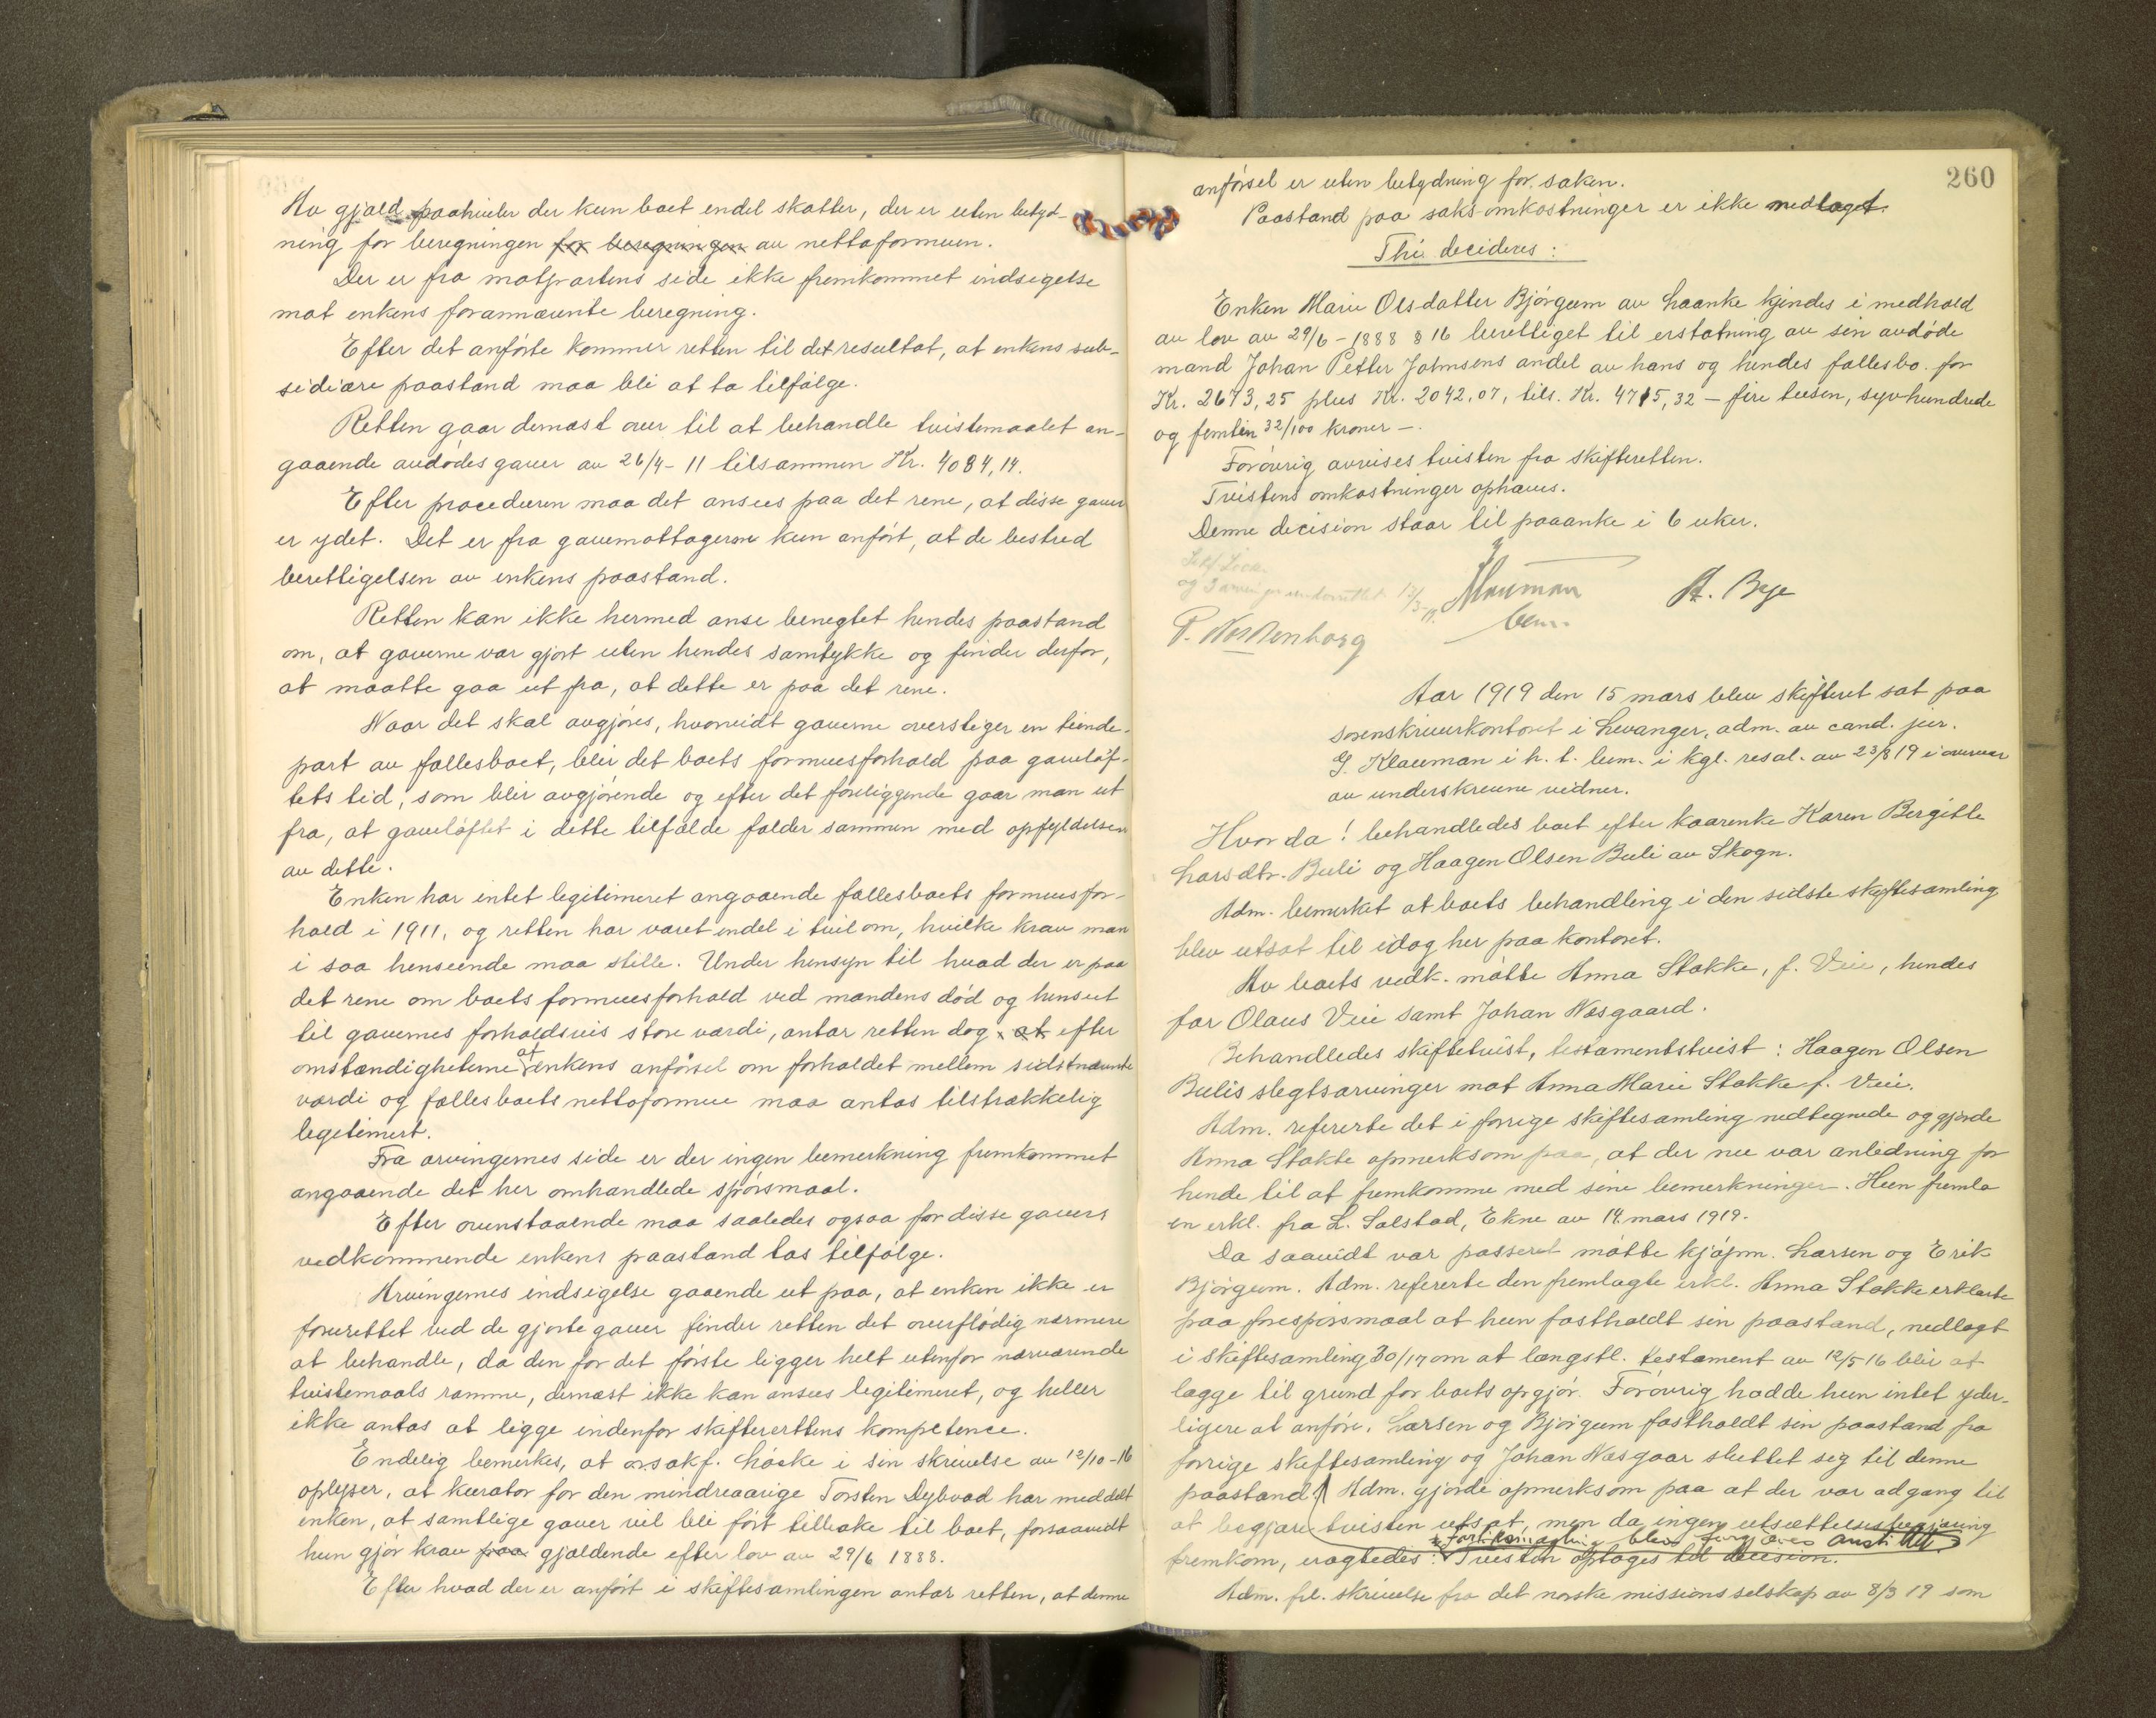 Av gjæld paahviler der kun boet endel skatter, der er uten betyd-
ning for beregningen for beregningen av nettoformuen.
Der er fra motpartens side ikke fremkommet indsigelse
mot enkens forannævnte beregning.
Efter det anförte kommer retten til det resultat, at enkens sub-
sidiære paastand maa bli at ta tilfölge.
Retten gaar dernæst over til at behandle tvistemaalet an-
gaaende avdödes gaver av 26/4-11 tilsammen Kr. 4084,14.
Efter proceduren maa det ansees paa det rene, at disse gaver
er ydet. Det er fra gavemottagerne kun anfört, at de bestred
berettigelsen av enkens paastand.
Retten kan ikke hermed anse benegtet hendes paastand
om, at gaverne var gjort uten hendes samtykke og finder derfor,
at maatte gaa ut fra, at dette er paa det rene.
Naar det skal avgjöres, hvorvidt gaverne overstiger en tiende-
part av fællesboet, blir det boets formuesforhold paa gavelöf-
tets tid, som blir avgjörende og efter det foreliggende gaar man ut
fra, at gavelöftet i dette tilfælde falder sammen med opfyldelsen
av dette.
Enken har intet legitimeret angaaende fællesboets formuesfor-
hold i 1911, og retten har været endel i tvil om, hvilke krav man
i saa henseende maa stille. Under hensyn til hvad der er paa
det rene om boets formuesforhold ved mandens död og henseet
til gavernes forholdsvis store værdi, antar retten dog at efter
omstændigheterne at enkens anförsel om forholdet mellem sidstnævnte
værdi og fællesboets nettoformue maa antas tilstrækkelig
legitimert.
Fra arvingernes side er der ingen bemerkning fremkommet
angaaende det her omhandlede spörsmaal.
Efter ovenstaaende maa saaledes ogsaa for disse gavers
vedkommende enkens paastand tas tilfölge.
Arvingernes indsigelse gaaende ut paa, at enken ikke er
forurettet ved de gjorte gaver finder retten det overflödig nærmere
at behandle, da den for det förste ligger helt utenfor nærværende
tvistemaals ramme, dernæst ikke kan ansees legitimeret, og heller
ikke antas at ligge indenfor skifterettens kompetence.
Endelig bemerkes, at o.r.sakf. Löcke i sin skrivelse av 12/10-16
oplyser, at kurator for den mindreaarige Torsten Dybvad har meddelt
enken, at samtlige gaver vil bli fört tilbake til boet, forsaavidt
hun gjör krav paa gjældende efter lov av 29/6 1888.
Efter hvad der er anfört i skiftesamlingen antar retten, at denne
260
anförsel er uten betydning for saken.
Paastand paa saksomkostninger er ikke nedlaget.
Thi decideres:
Enken Marie Olsdatter Björgum av Laanke kjendes i medhold
av lov av 29/6-1888 § 16 berettiget til erstatning av sin avdöde
mand Johan Petter Johnsens andel av hans og hendes fællesbo for
Kr. 2673,25 plus Kr. 2042,07, tils. Kr. 4715,32 – fire tusen, syvhundrede
og femten 32/100 kroner –.
Forövrig avvises tvisten fra skifteretten.
Tvistens omkostninger ophæves.
Denne decision staar til paaanke i 6 uker.
og 3 arvinger underrettet 13/3-19.
Klauman
bem.
A. Bye
P. Westenborg
Aar 1919 den 15 mars blev skifteret sat paa
sorenskriverkontoret i Levanger, adm. av cand. jur.
G. Klauman i h. t. bem. i kgl. resol. av 23/8 19 i overvær
av underskrevne vidner.
Hvor da! behandledes boet efter kaarenke Karen Bergitte
Larsdtr. Buli og Haagen Olsen Buli av Skogn.
Adm. bemerket at boets behandling i den sidste skiftesamling
blev utsat til idag her paa kontoret.
Av boets vedk. mötte Anna Stokke, f. Veie, hendes
far Olaus Veie samt Johan Næsgaard.
Behandledes skiftetvist, testamentstvist: Haagen Olsen
Bulis slegtsarvinger mot Anna Marie Stokke f. Veie.
Adm. refererte det i forrige skiftesamling nedtegnede og gjorde
Anna Stokke opmerksom paa, at der nu var anledning for
hende til at fremkomme med sine bemerkninger. Hun fremla
en erkl. fra L. Salstad, Ekne av 14. mars 1919.
Da saavidt var passeret mötte kjöpm. Larsen og Erik
Björgum. Adm. refererte den fremlagte erkl. Anna Stokke erklærte
paa forespörsmaal at hun fastholdt sin paastand, nedlagt
i skiftesamling 30/17 om at længstl. testament av 12/5 16 blir at
lægge til grund for boets opgjör. Forövrig hadde hun intet yder-
ligere at anföre. Larsen og Björgum fastholdt sin paastand fra
forrige skiftesamling og Johan Næsgaar sluttet sig til denne
paastand. Adm. gjorde opmerksom paa at der var adgang til
at begjære tvisten utsat, men da ingen utsættelsesbegjæring
Forliksmægling blev forgjæves anstillet.
fremkom, vagtedes: Tvisten optages til decision.
Adm. frl. skrivelse fra det norske missionsselskap av 8/3 19 som